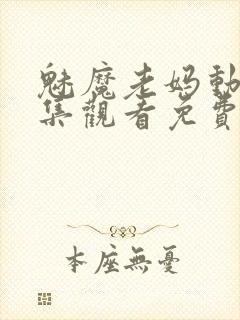 魅魔老妈動
集觀看免費
本座無憂